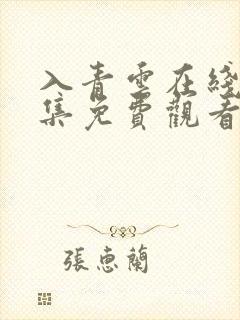 入青雲在綫
集免費觀看
張惠蘭